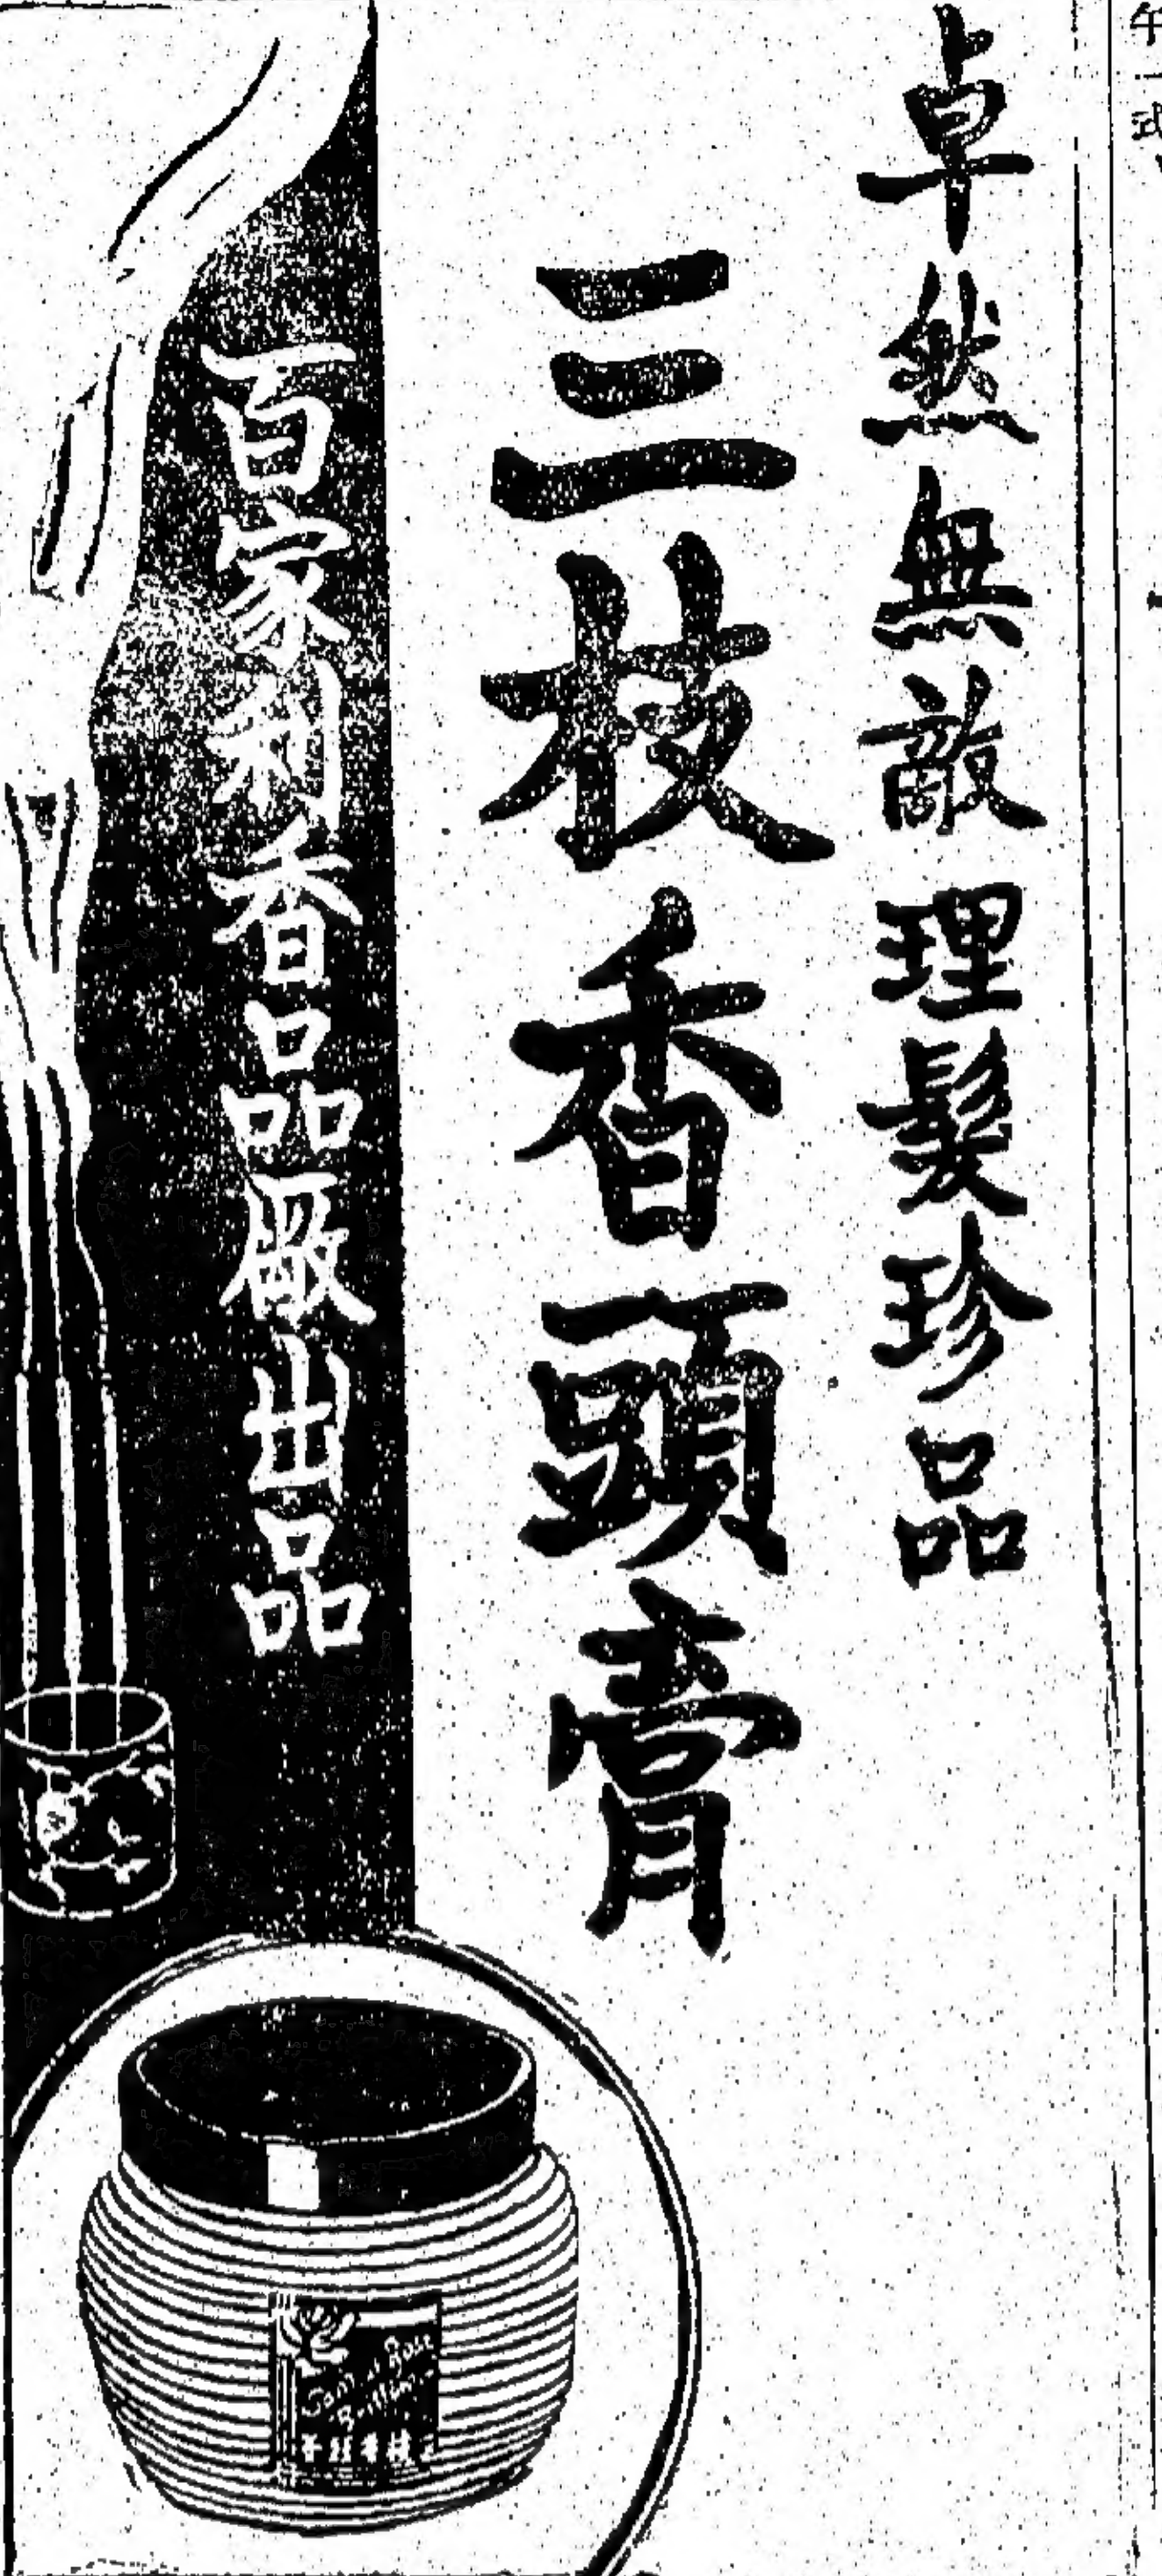 卓然無敵理髮珍品
三枝香頭膏
百家利香品廠出品